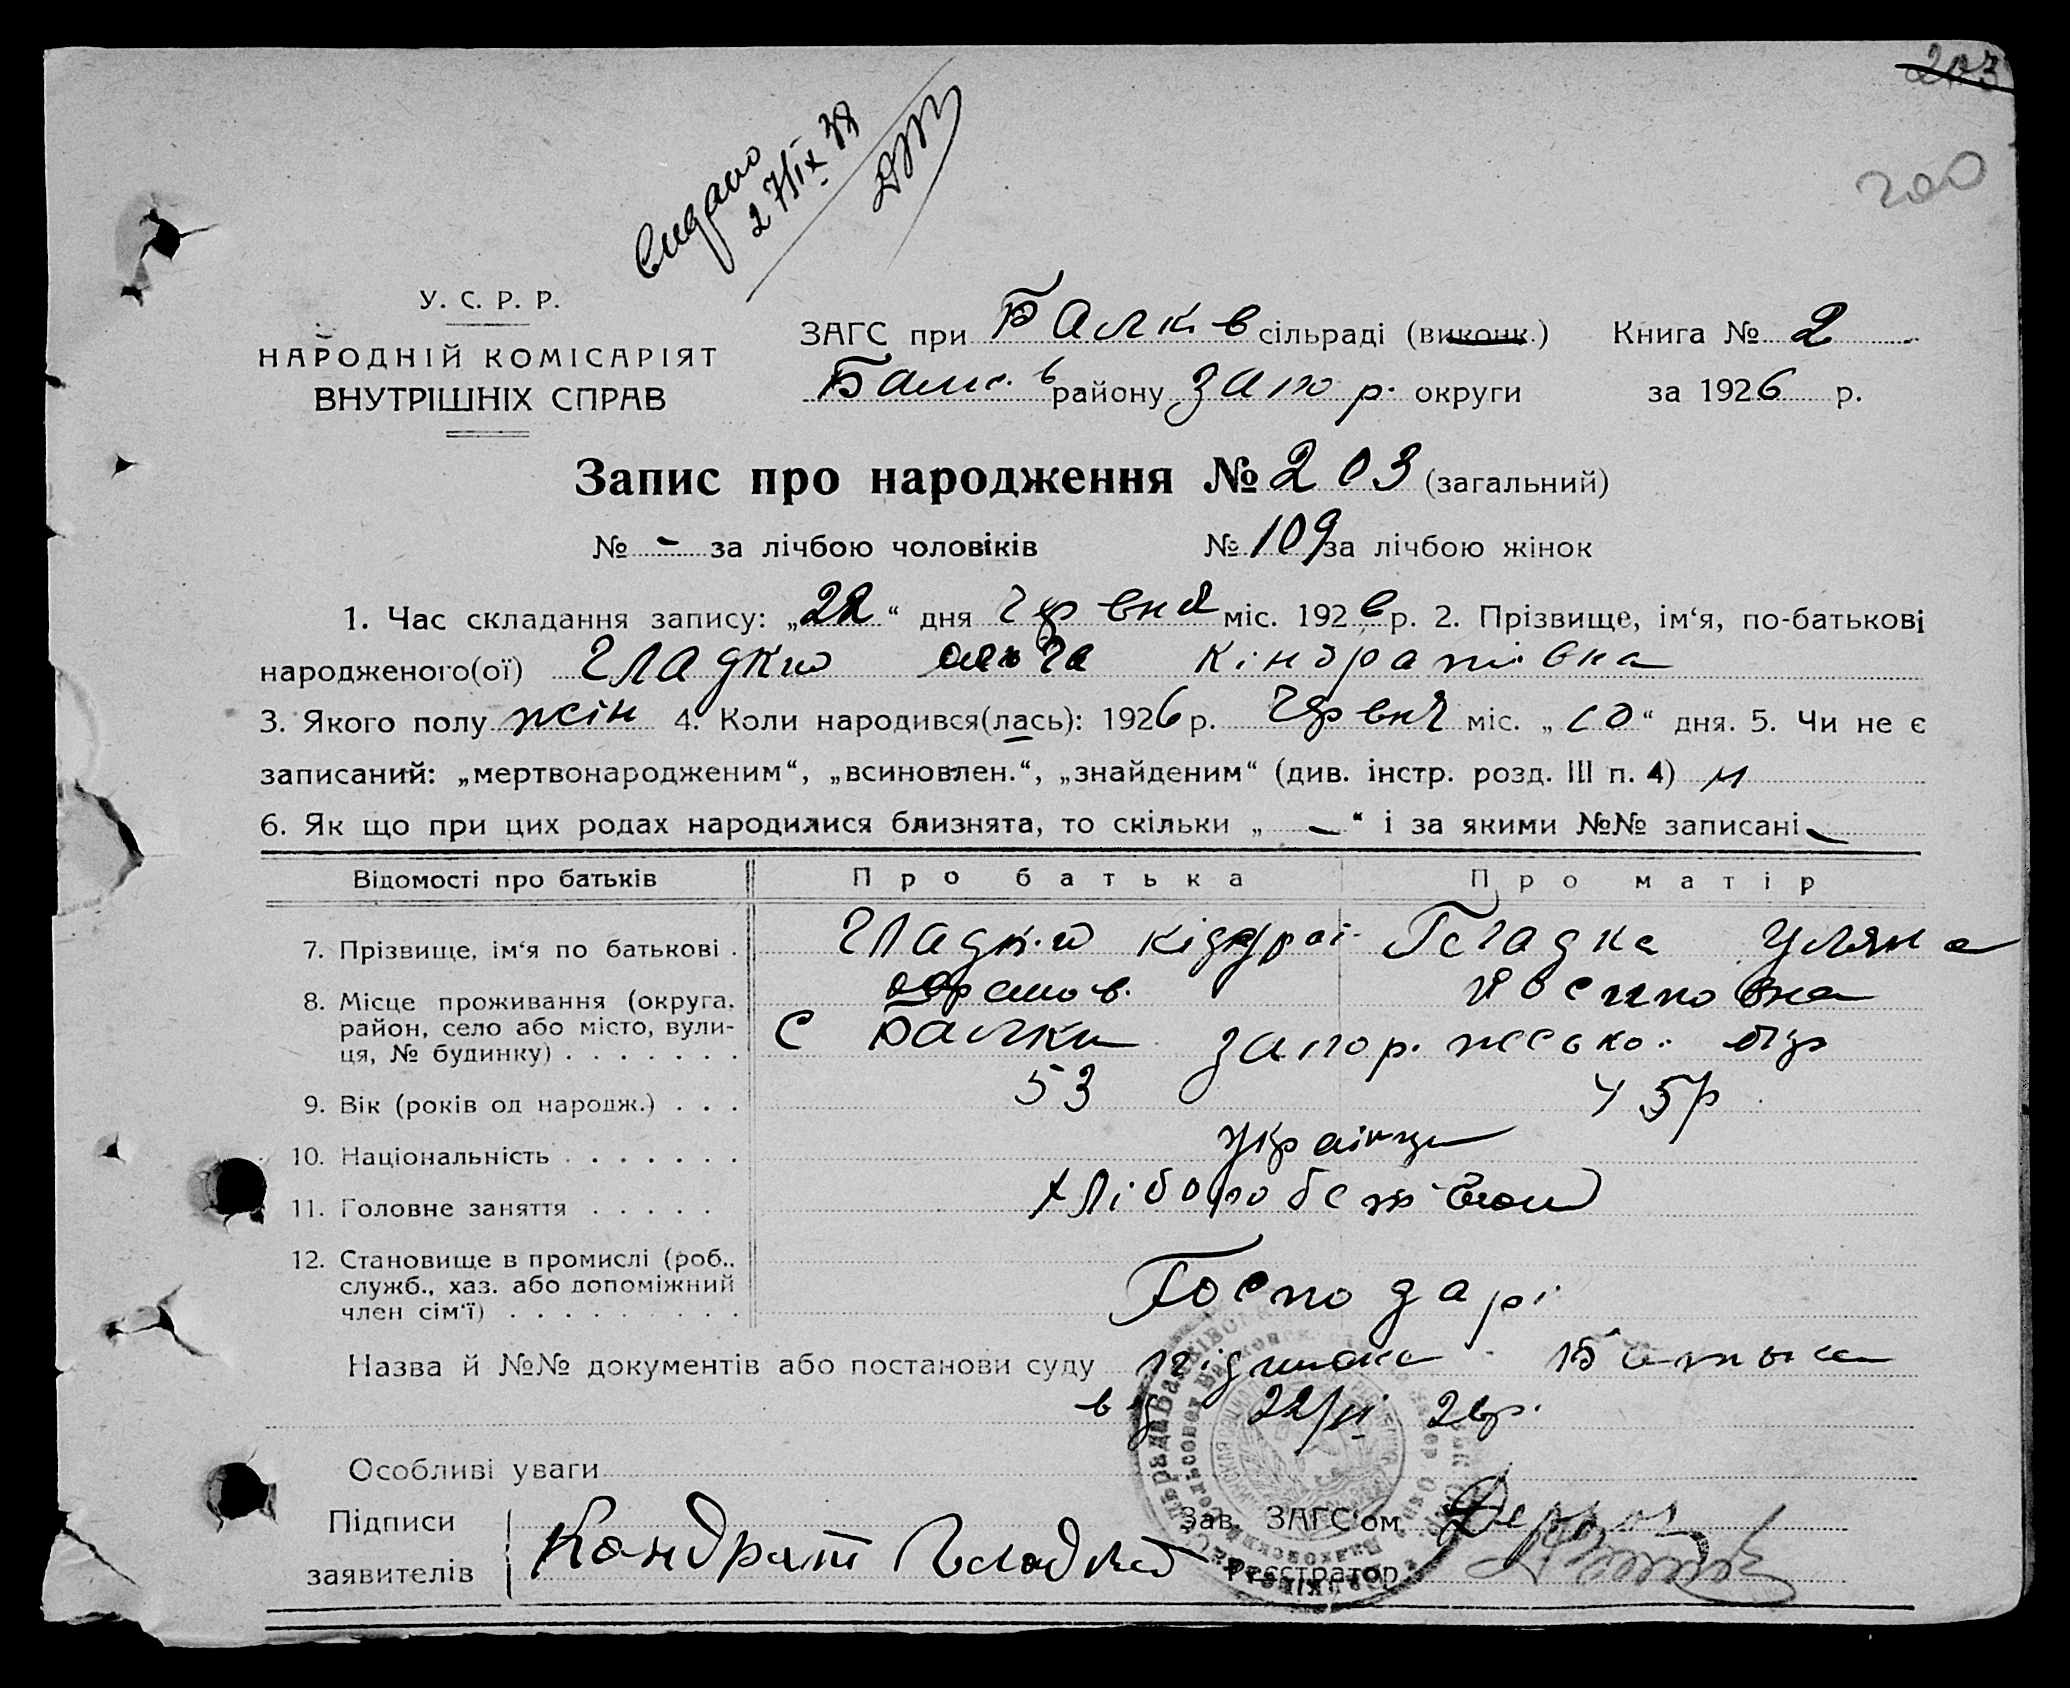 203
200
видано
27/IX 38
У. С. Р. Р.
НАРОДНІЙ КОМІСАРІЯТ
ВНУТРІШНІХ СПРАВ
ЗАГС при Балків сільраді (виконк.) Книга № 2
Балк. в району Запор. округи за 1926 р.
Запис про народження № 203 (загальний)
№ - за лічбою чоловіків № 109 за лічбою жінок
1. Час складання запису: „22“ дня Червня міс. 1926 р. 2. Прізвище, ім‘я, по-батькові
народженого(ої) Гладко Ольга Кіндратівна
3. Якого полу жін 4. Коли народився(лась): 1926 р. Червня міс. „20“ дня. 5. Чи не є
записаний: „мертвонародженим“, „всиновлен.“, „знайденим“ (див. інстр. розд. III п. 4) н
6. Як що при цих родах народилися близнята, то скільки „ — “ і за якими №№ записані —
Відомості про батьків Про батька Про матір
7. Прізвище, ім‘я по батькові . Гладко Кіндрат Гладка Уляна
8. Місце проживання (округа, район, село або місто, вулиця, № будинку) . . . . . . . С Балки Запоріжсько
9. Вік (років од народж.) . . . 53 45 р
10. Національність . . . . . . . Українци
11. Головне заняття . . . . . Хліборобством
12. Становище в промислі (роб., служб., хаз. або допоміжний член сім‘ї) . . . . . . . . . Господарі
Назва й №№ документів або постанови суду підписка батька
від 22/VI 26 р.
Особливі уваги
Підписи
заявителів
Кондрат Гладкий
Зав. ЗАГС‘ом
Реєстратор